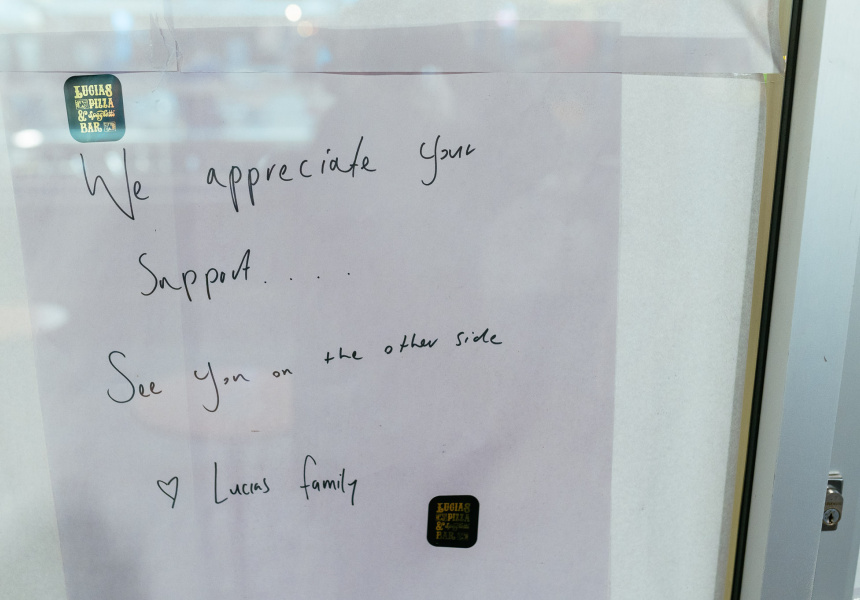 LUCIAS
PIZZA
& Spaghetti
BAR
We appreciate your
Support. . . .
See you on the other side
♡ Lucias family
LUCIAS
PIZZA
& Spaghetti
BAR